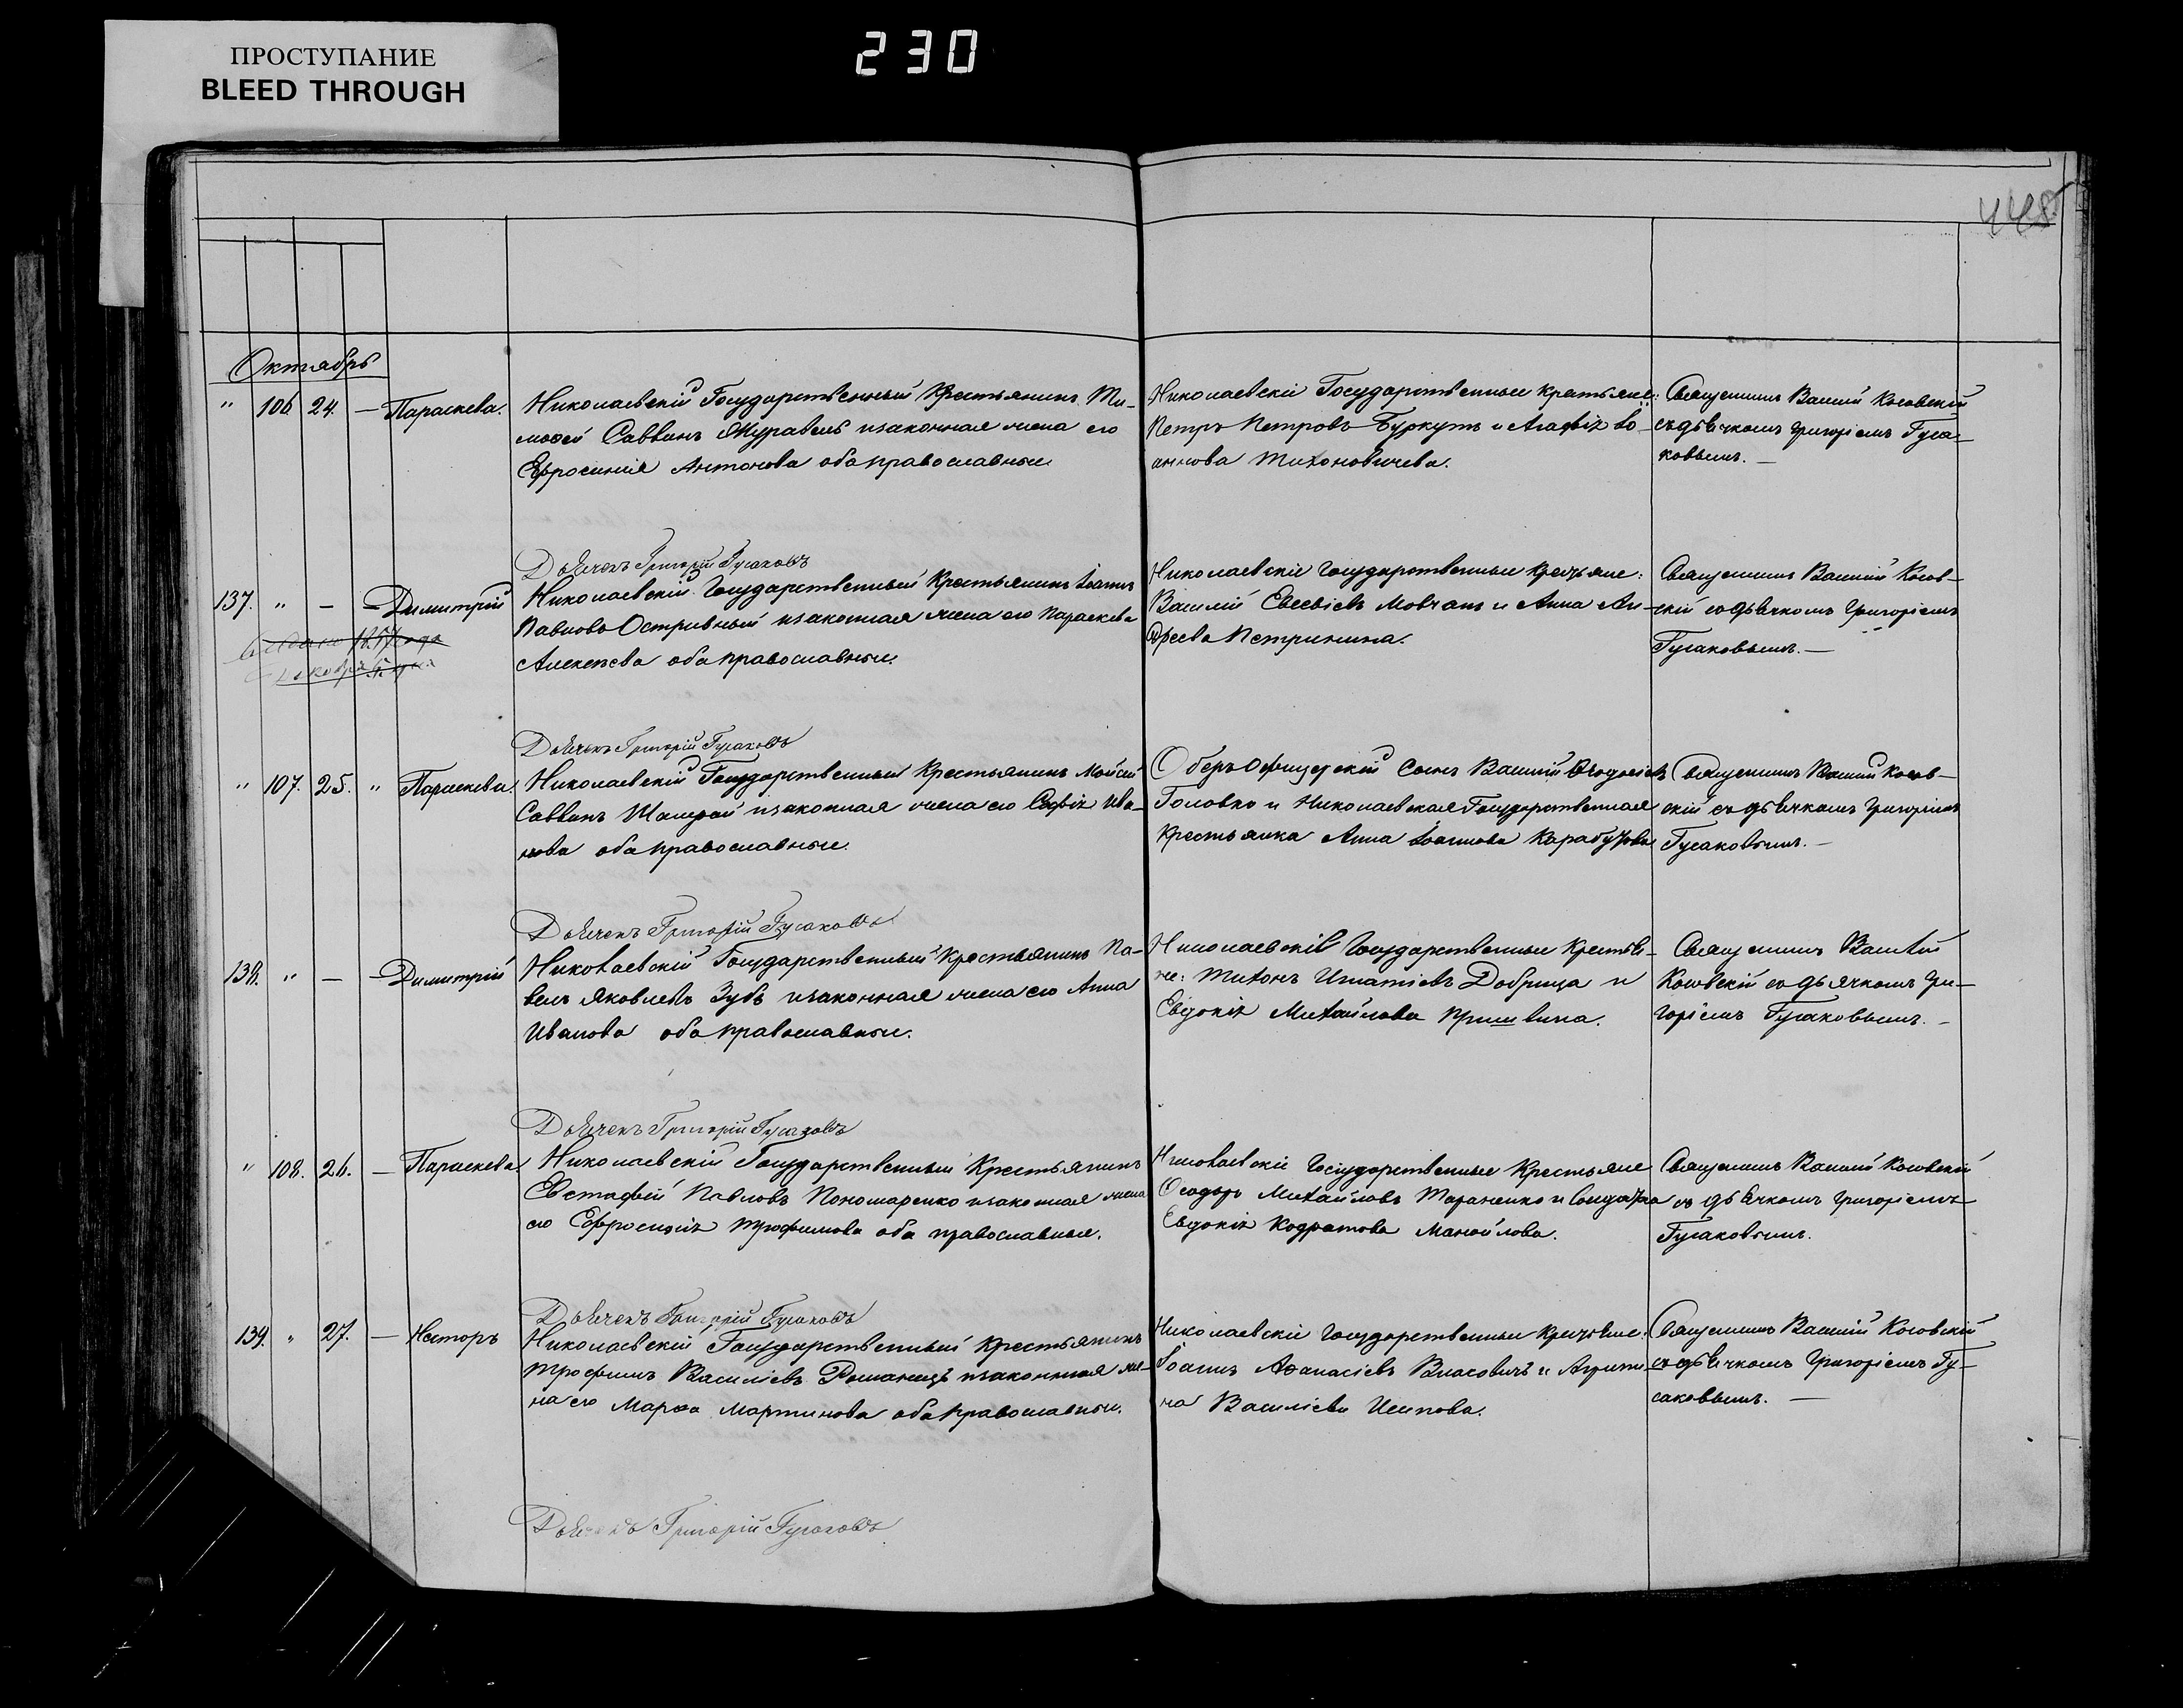 ПРОСТУПАНИЕ
BLEED THROUGH
230
448
Октябрь
" 106 24. — Параскева.
Николаевскій Государственный Крестьянинъ Ти-
моѳей Саввинъ Журавель изаконная жена его
Ефросинія Антонова оба православные
Николаевскіе Государственные крестьяне:
Петръ Петровъ Буркутъ и Агафія Іо-
аннова Тихоновичева.
Священникъ Василій Косовскій
съ дьячкомъ Григоріемъ Гуса-
ковымъ. —
Дьячекъ Григорій Гусаковъ
137. " — — Димитрій
Николаевскій Государственный Крестьянинъ Іоаннъ
Павловъ Островный изаконная жена его Параскева
Алексѣева оба православные.
Николаевскіе Государственные Крестьяне:
Василій Евсевіевъ Мовчанъ и Анна Ан-
дреева Петринина.
Священникъ Василій Косов-
скій со дьячкомъ Григоріемъ
Гусаковымъ. —
1857 года
Дьячекъ Григорій Гусаковъ
" 107. 25. " Параскева.
Николаевскій Государственный Крестьянинъ Мойсей
Саввинъ изаконная жена его Софія Ива-
нова оба православные.
Оберъ Офицерскій Сынъ Василій
Головко и Николаевская Государственная
Крестьянка Анна Іоаннова
Священникъ Василій Косов-
скій съ дьячкомъ Григоріемъ
Гусаковымъ. —
Дьячекъ Григорій Гусаковъ
138. " — — Димитрій
Николаевскій Государственный Крестьянинъ Па-
велъ Яковлевъ Зубъ изаконная жена его Анна
Иванова оба православные.
Николаевскіе Государственные Крестья-
не: Тихонъ Игнатіевъ Добрица и
Евдокія Михайлова Пришвина.
Священникъ Василій
Косовскій со дьячкомъ Гри-
горіемъ Гусаковымъ. —
Дьячекъ Григорій Гусаковъ
" 108. 26. — Параскева
Николаевскій Государственный Крестьянинъ
Евстафій Павловъ Пономаренко изаконная жена
его Ефросинія Трофимова оба православные.
Николаевскіе Государственные Крестьяне
Ѳеодоръ Михайловъ Тараненко и Солдатка
Евдокія Кодратова Манойлова.
Священникъ Василій Косовскій
съ дьячкомъ Григоріемъ
Гусаковымъ.
Дьячекъ Григорій Гусаковъ
139. " 27. — Несторъ
Николаевскій Государственный Крестьянинъ
Трофимъ Василіевъ Романецъ изаконная же-
на его Марѳа Мартинова оба православные.
Николаевскіе Государственные Крестьяне:
Іоаннъ Аѳанасіевъ Власовичъ и Агрипи-
на Василіева Исипова.
Священникъ Василій Косовскій
съ дьячкомъ Григоріемъ Гу-
саковымъ. —
Дьячекъ Григорій Гусаковъ